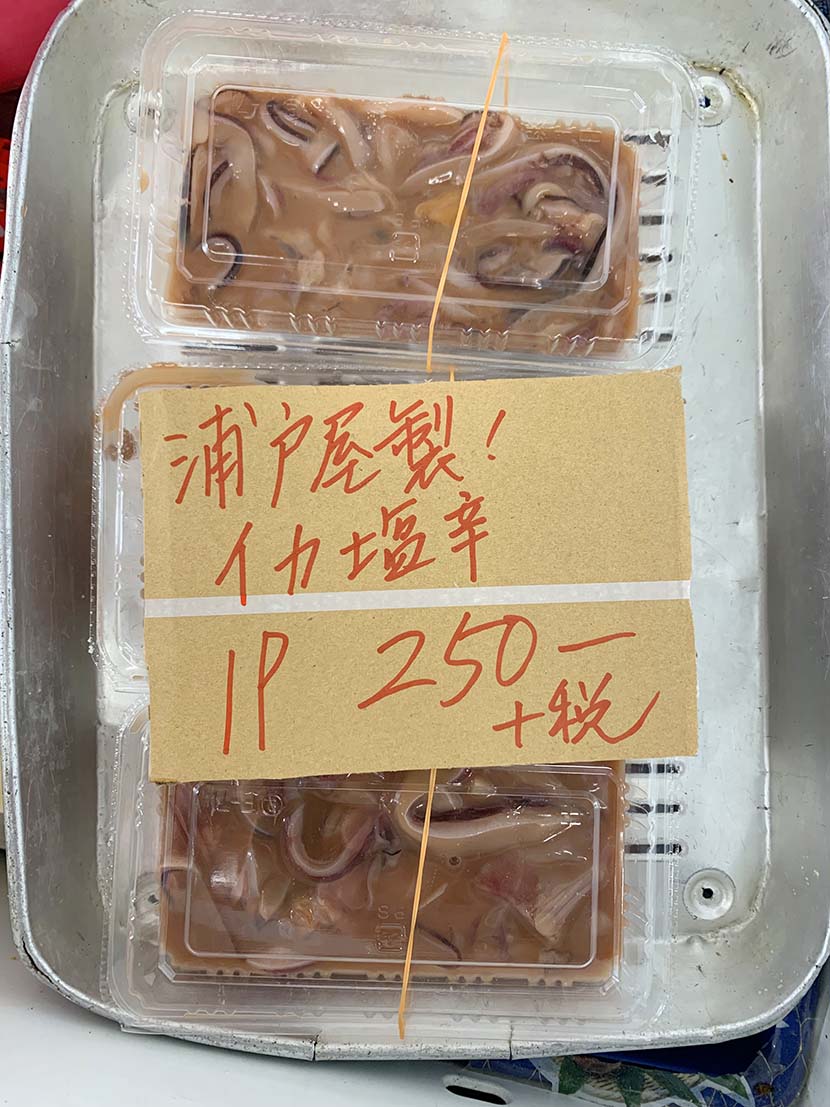 浦戸屋製!
イカ塩辛
1P 250一
+税